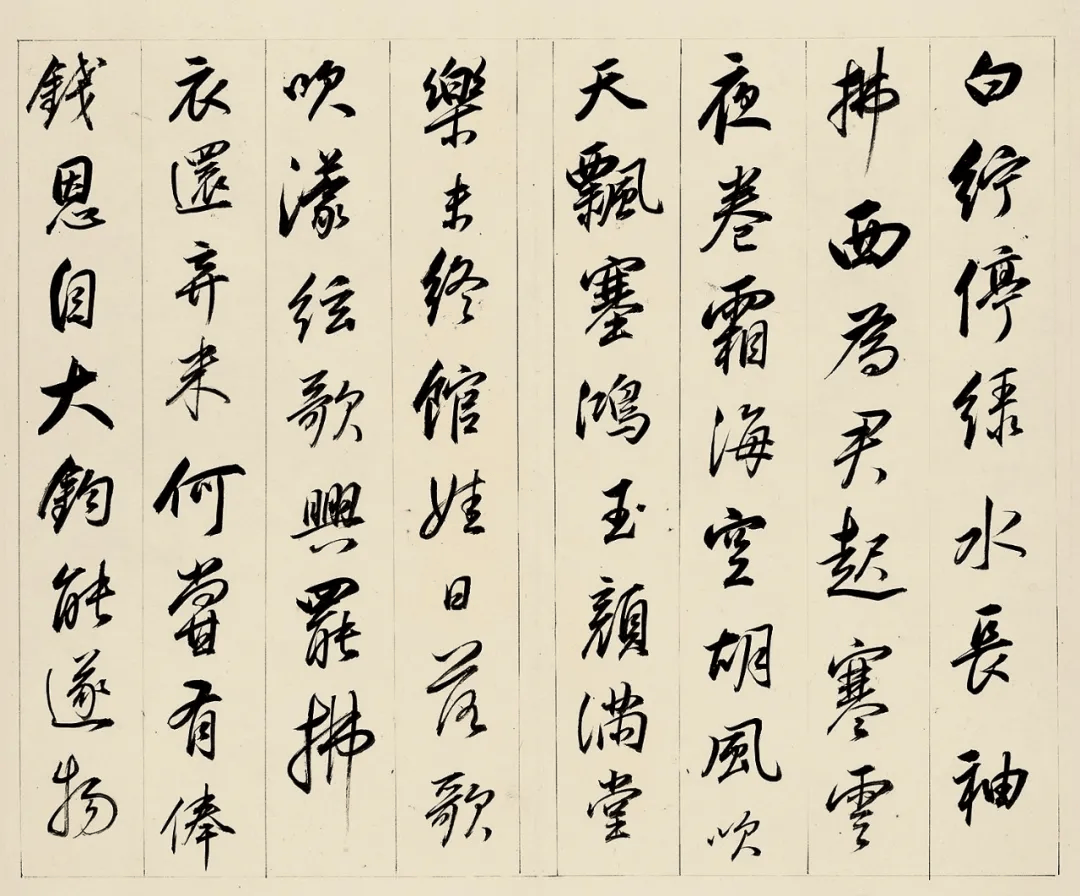 白紵停綠水長袖
拂西為君起寒雲
夜卷霜海空胡風吹
天飄塞鴻玉顏滿堂
樂未終館娃日落歌
吹濛絃歌興罷拂
衣還弃来何嘗有俸
錢恩自大鈞能遂物